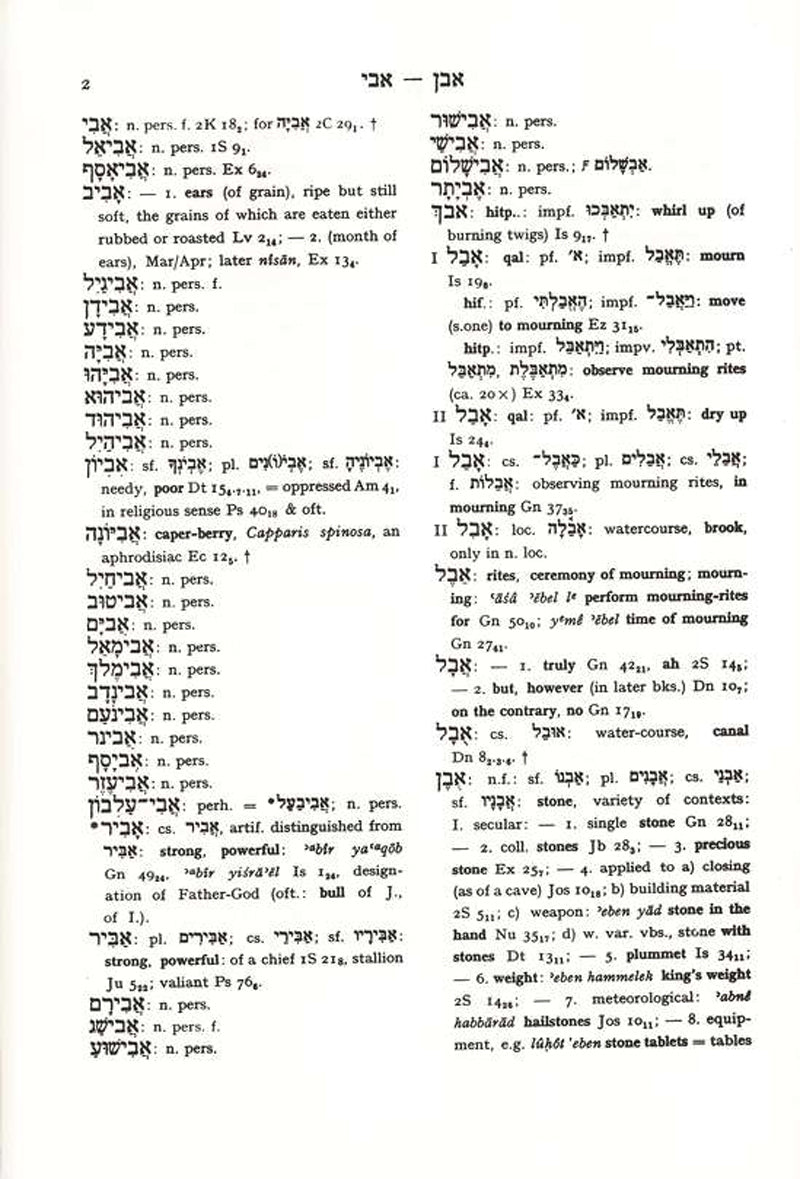 2
אבי — אבן
אֲבִי: n. pers. f. 2K 18₂; for אֲבִיָּה 2C 29₁. †
אֲבִיאֵל: n. pers. 1S 9₁.
אֲבִיאָסָף: n. pers. Ex 6₂₄.
אָבִיב: — 1. ears (of grain), ripe but still
soft, the grains of which are eaten either
rubbed or roasted Lv 2₁₄; — 2. (month of
ears), Mar/Apr; later nîsān, Ex 13₄.
אֲבִיגַיִל: n. pers. f.
אֲבִידָן: n. pers.
אֲבִידָע: n. pers.
אֲבִיָּה: n. pers.
אֲבִיָּהוּ: n. pers.
אֲבִיהוּא: n. pers.
אֲבִיהוּד: n. pers.
אֲבִיהַיִל: n. pers.
אֶבְיוֹן: sf. אֶבְיֹנְךָ; pl. אֶבְי(וֹ)נִים; sf. אֶבְיוֹנֶיהָ:
needy, poor Dt 15₄.₇.₁₁, = oppressed Am 4₁,
in religious sense Ps 40₁₈ & oft.
אֲבִיּוֹנָה: caper-berry, Capparis spinosa, an
aphrodisiac Ec 12₅. †
אֲבִיחַיִל: n. pers.
אֲבִיטוּב: n. pers.
אֲבִיָּם: n. pers.
אֲבִימָאֵל: n. pers.
אֲבִימֶלֶךְ: n. pers.
אֲבִינָדָב: n. pers.
אֲבִינֹעַם: n. pers.
אֲבִינֵר: n. pers.
אֶבְיָסָף: n. pers.
אֲבִיעֶזֶר: n. pers.
אֲבִי־עַלְבוֹן: perh. = אֲבִיבַעַל*; n. pers.
*אָבִיר: cs. אֲבִיר, artif. distinguished from
אַבִּיר: strong, powerful: ʾᵃbîr yaʿᵃqōb
Gn 49₂₄, ʾᵃbîr yiśrāʾēl Is 1₂₄, design-
ation of Father-God (oft.: bull of J.,
of I.).
אַבִּיר: pl. אַבִּירִים; cs. אַבִּירֵי; sf. אַבִּירָיו:
strong, powerful: of a chief 1S 21₈, stallion
Ju 5₂₂; valiant Ps 76₆.
אֲבִירָם: n. pers.
אֲבִישַׁג: n. pers. f.
אֲבִישׁוּעַ: n. pers.
אֲבִישׁוּר: n. pers.
אֲבִישַׁי: n. pers.
אֲבִישָׁלוֹם: n. pers.; F אַבְשָׁלוֹם.
אֶבְיָתָר: n. pers.
אבך: hitp..: impf. יִתְאַבְּכוּ: whirl up (of
burning twigs) Is 9₁₇. †
I אָבַל: qal: pf. א׳; impf. תֶּאֱבַל: mourn
Is 19₈.
hif.: pf. הֶאֱבַלְתִּי; impf. וַיַּאֲבֶל־: move
(s.one) to mourning Ez 31₁₅.
hitp.: impf. וַיִּתְאַבֵּל; impv. הִתְאַבְּלִי; pt.
מִתְאַבֵּל, מִתְאַבֶּלֶת: observe mourning rites
(ca. 20×) Ex 33₄.
II אָבַל: qal: pf. א׳; impf. תֶּאֱבַל: dry up
Is 24₄.
I אָבֵל: cs. כַּאֲבֶל־; pl. אֲבֵלִים; cs. אֲבֵלֵי;
f. אֲבֵלוֹת: observing mourning rites, in
mourning Gn 37₃₅.
II אָבֵל: loc. אָבֵלָה: watercourse, brook,
only in n. loc.
אֵבֶל: rites, ceremony of mourning; mourn-
ing: ʿāśâ ʾēbel lᵉ perform mourning-rites
for Gn 50₁₀; yᵉmê ʾēbel time of mourning
Gn 27₄₁.
אֲבָל: — 1. truly Gn 42₂₁, ah 2S 14₅;
— 2. but, however (in later bks.) Dn 10₇;
on the contrary, no Gn 17₁₉.
אֻבָל: cs. אוּבַל: water-course, canal
Dn 8₂.₃.₆. †
אֶבֶן: n.f.: sf. אַבְנוֹ; pl. אֲבָנִים; cs. אַבְנֵי;
sf. אֲבָנָיו: stone, variety of contexts:
I. secular: — 1. single stone Gn 28₁₁;
— 2. coll. stones Jb 28₃; — 3. precious
stone Ex 25₇; — 4. applied to a) closing
(as of a cave) Jos 10₁₈; b) building material
2S 5₁₁; c) weapon: ʾeben yād stone in the
hand Nu 35₁₇; d) w. var. vbs., stone with
stones Dt 13₁₁; — 5. plummet Is 34₁₁;
— 6. weight: ʾeben hammelek king's weight
2S 14₂₆; — 7. meteorological: ʾabnê
habbārād hailstones Jos 10₁₁; — 8. equip-
ment, e.g. lûḥôt ʾeben stone tablets = tables